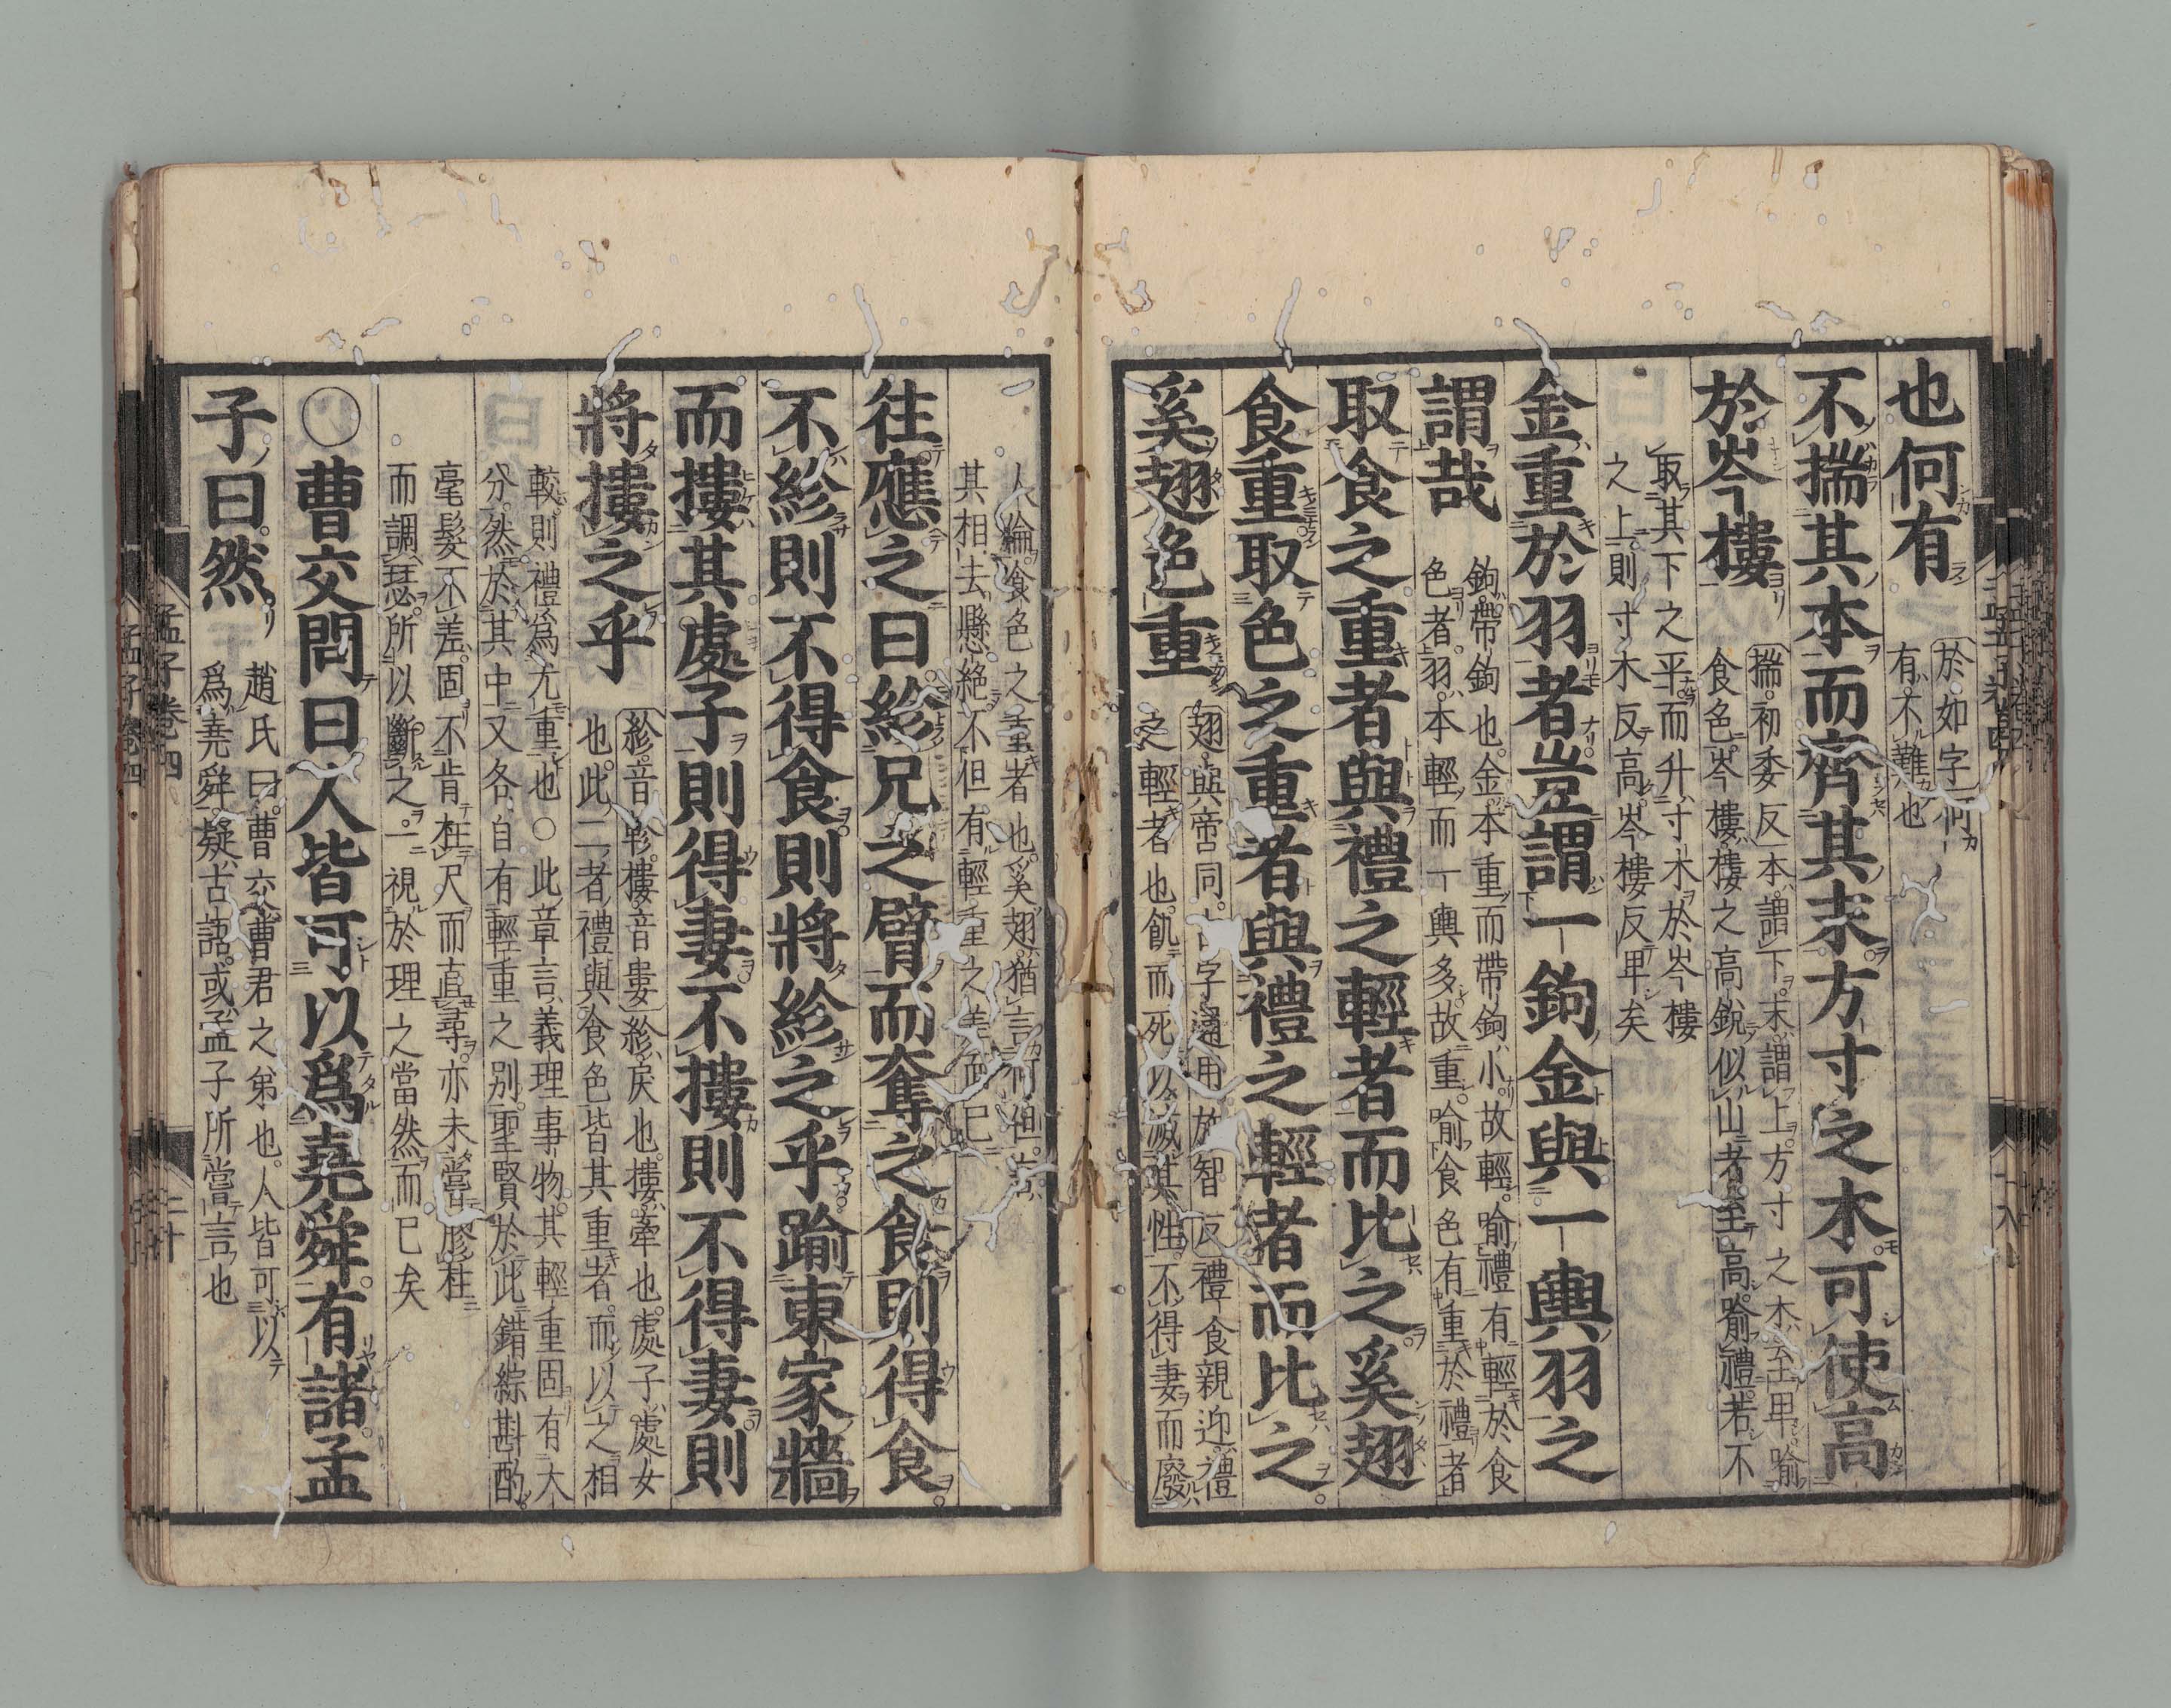 也何有
於如字何
有不難也
不揣其本而齊其末方寸之木可使高
於岑樓
揣初委反本謂下末謂上方寸之木至卑喻
食色岑樓樓之高銳似山者至高喻禮若不
取其下之平而升寸木於岑樓
之上則寸木反高岑樓反卑矣
金重於羽者豈謂一鉤金與一輿羽之
謂哉
鉤帶鉤也金本重而帶鉤小故輕喻禮有輕於食
色者羽本輕而一輿多故重喻食色有重於禮者
取食之重者與禮之輕者而比之奚翅
食重取色之重者與禮之輕者而比之
奚翅色重
翅與啻同古字通用施智反禮食親迎禮
之輕者也飢而死以滅其性不得妻而廢
人倫食色之重者也奚翅猶言何但言
其相去懸絕不但有輕重之差而已
往應之曰紾兄之臂而奪之食則得食
不紾則不得食則將紾之乎踰東家牆
而摟其處子則得妻不摟則不得妻則
將摟之乎
紾音軫摟音婁紾戾也摟牽也處子處女
也此二者禮與食色皆其重者而以之相
較則禮為尤重也○此章言義理事物其輕重固有大
分然於其中又各自有輕重之別聖賢於此錯綜斟酌
毫髮不差固不肯枉尺而直尋亦未嘗膠柱
而調瑟所以斷之一視於理之當然而已矣
○曹交問曰人皆可以爲堯舜有諸孟
子曰然
趙氏曰曹交曹君之弟也人皆可以
爲堯舜疑古語或孟子所嘗言也
孟子卷四
二十